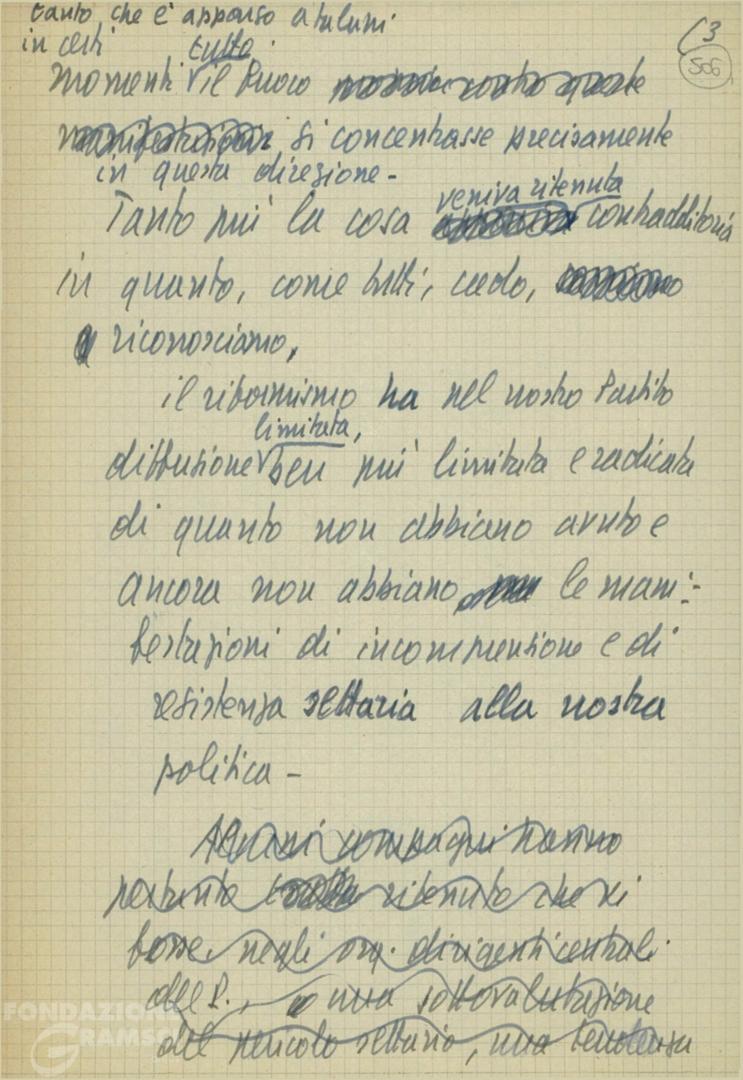 tanto, che è apparso a taluni
in certi
tutto
(3
506
momenti il fuoco
si concentrasse precisamente
in questa direzione -
veniva ritenuta
Tanto più la cosa contradditoria
in quanto, come tutti, credo,
riconosciamo,
il riformismo ha nel nostro Partito
limitata,
diffusione ben più limitata e radicata
di quanto non abbiano avuto e
ancora non abbiano le mani-
festazioni di incomprensione e di
resistenza settaria alla nostra
politica -
Alcuni compagni hanno
pertanto ritenuto che vi
fosse negli org. dirigenti centrali
del P., una sottovalutazione
del pericolo settario, una tendenza
FONDAZIONE
GRAMSCI